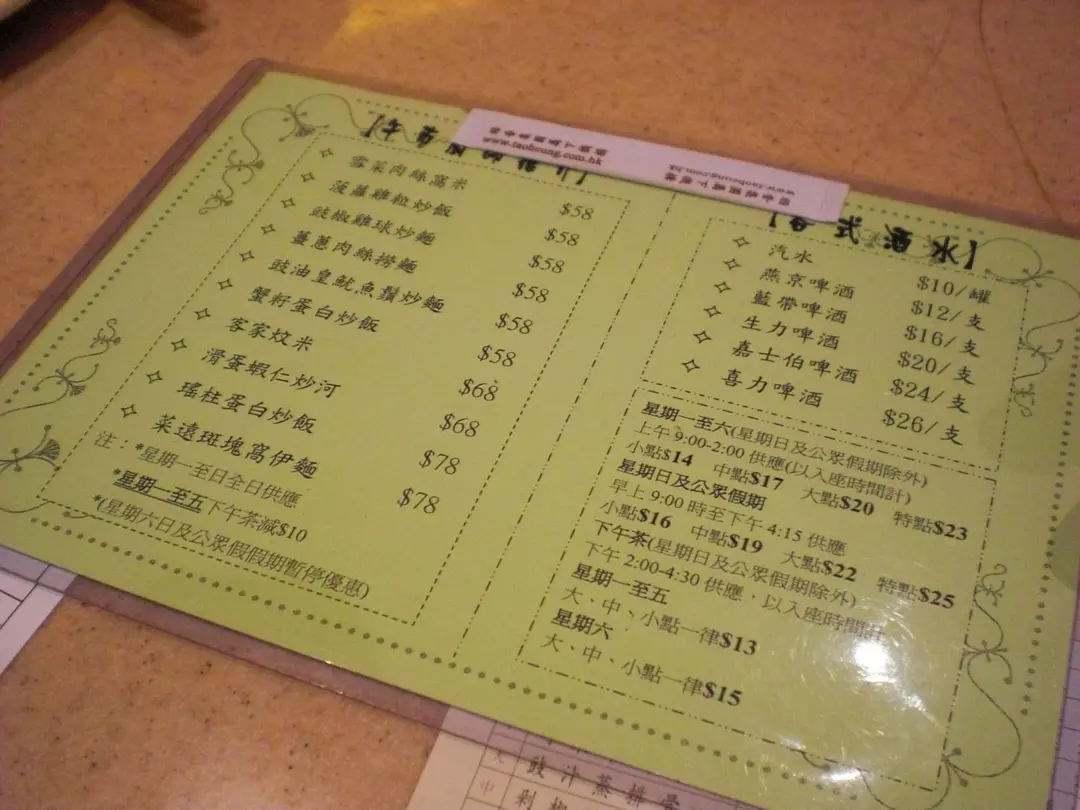 【午市
推介】
稻香集團屬下機構
www.taoheung.com.hk
稻香集團屬下機構
www.taoheung.com.hk
雪菜肉絲窩米 $58
菠蘿雞粒炒飯 $58
豉椒雞球炒麵 $58
薑蔥肉絲撈麵 $58
豉油皇魷魚鬚炒麵 $58
蟹籽蛋白炒飯 $58
客家炆米 $68
滑蛋蝦仁炒河 $68
瑤柱蛋白炒飯 $78
菜遠斑塊窩伊麵 $78
注：*星期一至日全日供應
*星期一至五下午茶減$10
*(星期六日及公眾假假期暫停優惠)
【各式酒水】
汽水 $10/罐
燕京啤酒 $12/支
藍帶啤酒 $16/支
生力啤酒 $20/支
嘉士伯啤酒 $24/支
喜力啤酒 $26/支
星期一至六(星期日及公眾假期除外)
上午 9:00-2:00 供應(以入座時間計)
小點$14 中點$17 大點$20 特點$23
星期日及公眾假期
早上 9:00 時至下午 4:15 供應
小點$16 中點$19 大點$22 特點$25
下午茶(星期日及公眾假期除外)
下午 2:00-4:30 供應，以入座時間計
星期一至五
大、中、小點一律$13
星期六
大、中、小點一律$15
大 豉汁蒸排骨
中 剁椒